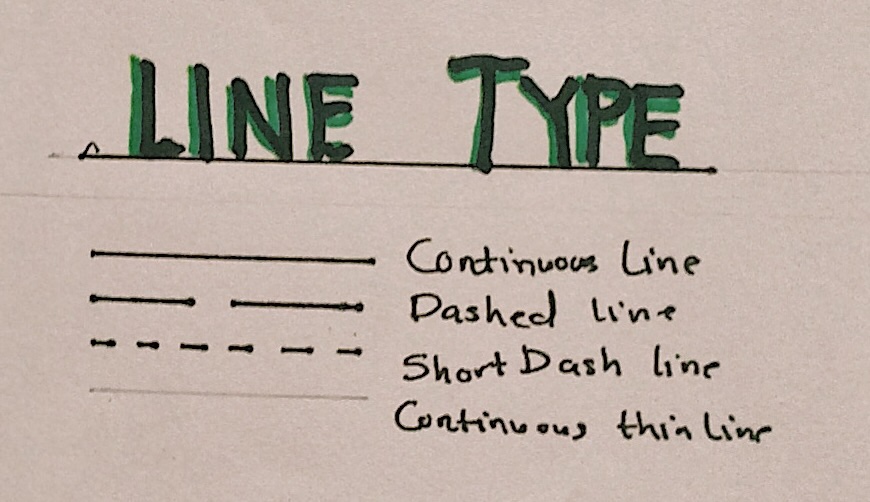 LINE TYPE
Continuous Line
Dashed line
Short Dash line
Continuous thin Line